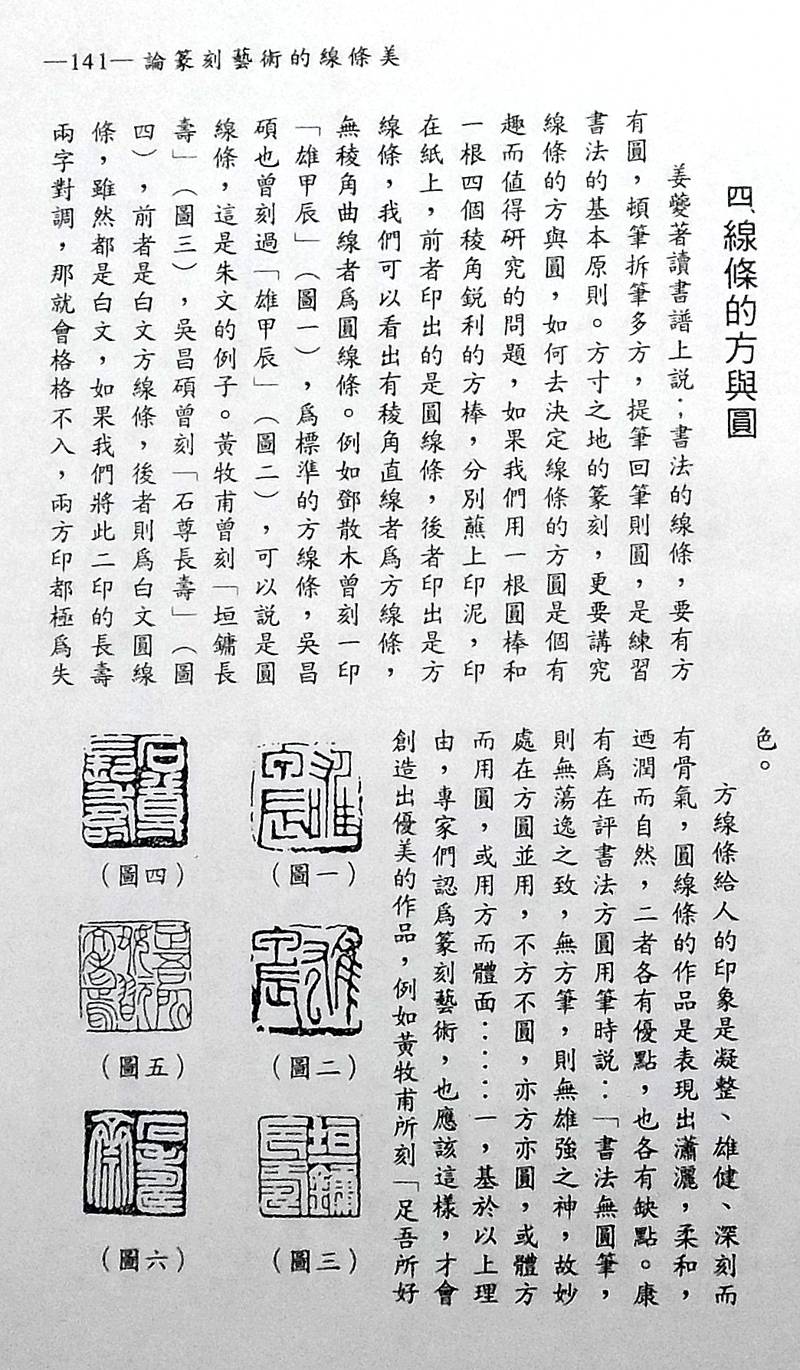 —141— 論篆刻藝術的線條美
四、線條的方與圓
姜夔著讀書譜上說；書法的線條，要有方
有圓，頓筆拆筆多方，提筆回筆則圓，是練習
書法的基本原則。方寸之地的篆刻，更要講究
線條的方與圓，如何去決定線條的方圓是個有
趣而值得研究的問題，如果我們用一根圓棒和
一根四個稜角銳利的方棒，分別蘸上印泥，印
在紙上，前者印出的是圓線條，後者印出是方
線條，我們可以看出有稜角直線者爲方線條，
無稜角曲線者爲圓線條。例如鄧散木曾刻一印
「雄甲辰」（圖一），爲標準的方線條，吳昌
碩也曾刻過「雄甲辰」（圖二），可以說是圓
線條，這是朱文的例子。黃牧甫曾刻「垣鏞長
壽」（圖三），吳昌碩曾刻「石尊長壽」（圖
四），前者是白文方線條，後者則爲白文圓線
條，雖然都是白文，如果我們將此二印的長壽
兩字對調，那就會格格不入，兩方印都極爲失
色。
方線條給人的印象是凝整、雄健、深刻而
有骨氣，圓線條的作品是表現出瀟灑，柔和，
迺潤而自然，二者各有優點，也各有缺點。康
有爲在評書法方圓用筆時說：「書法無圓筆，
則無蕩逸之致，無方筆，則無雄強之神，故妙
處在方圓並用，不方不圓，亦方亦圓，或體方
而用圓，或用方而體面：：：一，基於以上理
由，專家們認爲篆刻藝術，也應該這樣，才會
創造出優美的作品，例如黃牧甫所刻「足吾所好
（圖一）
（圖二）
（圖三）
（圖四）
（圖五）
（圖六）